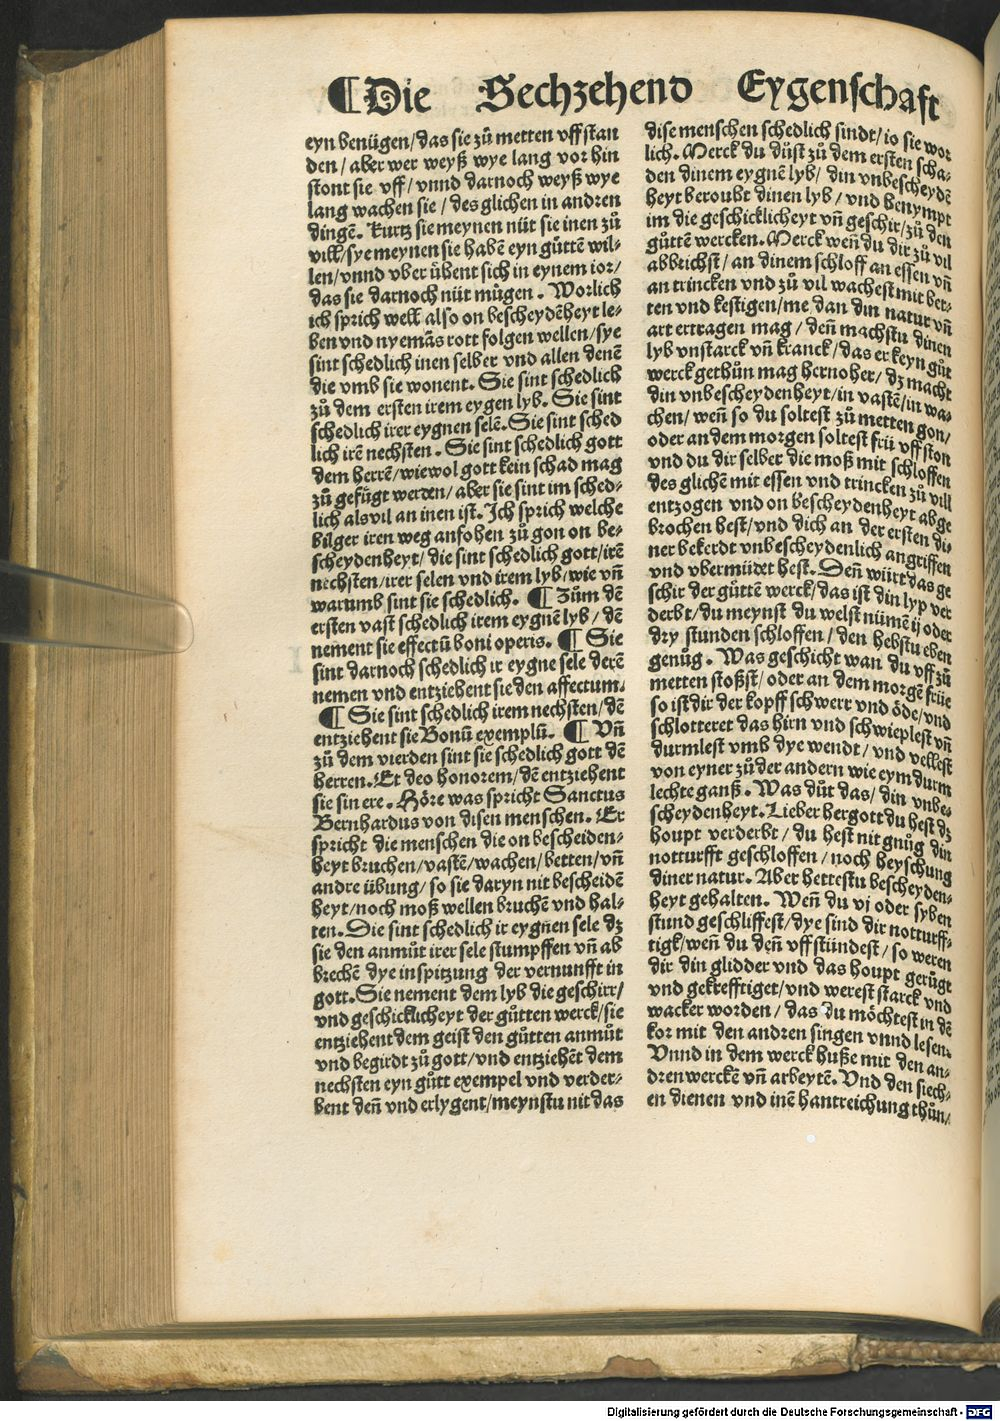 ¶Die Sechzehend Eygenschaft
eyn benügen/das sie zů metten vffstan
den/aber wer weyß wye lang vor hin
stont sie vff/vnnd darnoch weyß wye
lang wachen sie/desglichen in andren
dingē. Kurtz sie meynen nüt sie inen zů
vill/sye meynen sie habē eyn gůttē wil⸗
len/vnnd vber übent sich in eynem ior/
das sie darnoch nüt mügen. Worlich
ich sprich well also on bescheydēheyt le⸗
ben vnd nyemās rott folgen wellen/sye
sint schedlich inen selber vnd allen denē
die vmb sie wonent. Sie sint schedlich
zů dem ersten irem eygen lyb. Sie sint
schedlich irer eygnen selē. Sie sint sched
lich irē nechsten. Sie sint schedlich gott
dem herrē/wiewol gott kein schad mag
zů gefügt werden/aber sie sint im sched⸗
lich als vil an inen ist. Ich sprich welche
bilger iren weg anfohen zů gon on be⸗
scheydenheyt/die sint schedlich gott/irē
nechsten/irer selen vnd irem lyb/wie vn̄
warumb sint sie schedlich. ¶ Zům dē
ersten vast schedlich irem eygnē lyb/dē
nement sie effectū boni operis. ¶ Sie
sint darnoch schedlich ir eygne sele derē
nemen vnd entziehent sie den affectum.
¶ Sie sint schedlich irem nechsten/dē
entziehent sie Bonū exemplū. ¶ Vn̄
zů dem vierden sint sie schedlich gott dē
herren. Et deo honorem/dē entziehent
sie sin ere. Höre was spricht Sanctus
Bernhardus von disen menschen. Er
spricht die menschen die on bescheiden⸗
heyt bruchen/vastē/wachen/betten/vn̄
andre übung/so sie daryn nit bescheidē
heyt/noch moß wellen bruchē vnd hal⸗
ten. Die sint schedlich ir eygnen sele dz
sie den anmůt irer sele stumpffen vn̄ ab
brechē dye inspitzung der vernunfft in
gott. Sie nement dem lyb die geschirr/
vnd geschicklicheyt der gůtten werck/sie
entziehent dem geist den gůtten anmůt
vnd begirdt zů gott/vnd entziehēt dem
nechsten eyn gůtt exempel vnd verder⸗
bent den̄ vnd erlygent/meynstu nit das
dise menschen schedlich sindt/io sie wor
lich. Merck du důst zů dem ersten scha⸗
den dinem eygnē lyb/din vnbescheydē
heyt beroubt dinen lyb/vnd benympt
im die geschicklicheyt vn̄ geschir/zů den
gůttē wercken. Merck wen̄ du dir zů vil
abbrichst/an dinem schloff an essen vn̄
an trincken vnd zů vil wachest mit bet⸗
ten vnd kestigen/me dan din natur vn̄
art ertragen mag/den̄ machstu dinen
lyb vnstarck vn̄ kranck/das er keyn gůt
werck gethůn mag hernoher/dz macht
din vnbescheydenheyt/in vastē/in wa⸗
chen/wen̄ so du soltest zů metten gon/
oder an dem morgen soltest frü vff ston
vnd du dir selber die moß mit schloffen
des glichē mit essen vnd trincken zů vill
entzogen vnd on bescheydenheyt abge
brochen hest/vnd dich an der ersten di⸗
ner bekerdt vnbescheydenlich angriffen
vnd vbermüdet hest. Den̄ würt das ge
schir der gůttē werck/das ist din lyp ver
derbt/du meynst du welst nümē ij oder
dry stunden schloffen/den hebstu eben
genůg. Was geschicht wan du vff zů
metten stoßst/oder an dem morgē früe
so ist dir der kopff schwerr vnd öde/vnd
schlotteret das hirn vnd schwieplest vn̄
durmlest vmb dye wendt/vnd vellest
von eyner zů der andern wie eym durm
lechte ganß. Was důt das/din vnbe⸗
scheydenheyt. Lieber hergott du hest dz
houpt verderbt/du hest nit gnůg din
notturfft geschloffen/noch heyschung
diner natur. Aber hettestu bescheyden⸗
heyt gehalten. Wen̄ du vj oder syben
stund geschliffest/dye sind dir notturff⸗
tigk/wen̄ du den̄ vff stündest/so weren
dir din glidder vnd das houpt gerügt
vnd gekrefftiget/vnd werest starck vnd
wacker worden/das du möchtest in dē
kor mit den andren singen vnnd lesen.
Vnnd in dem werck huße mit den an⸗
dren werckē vn̄ arbeytē. Vnd den siech⸗
en dienen vnd inē hantreichung thůn/
Digitalisierung gefördert durch die Deutsche Forschungsgemeinschaft - DFG